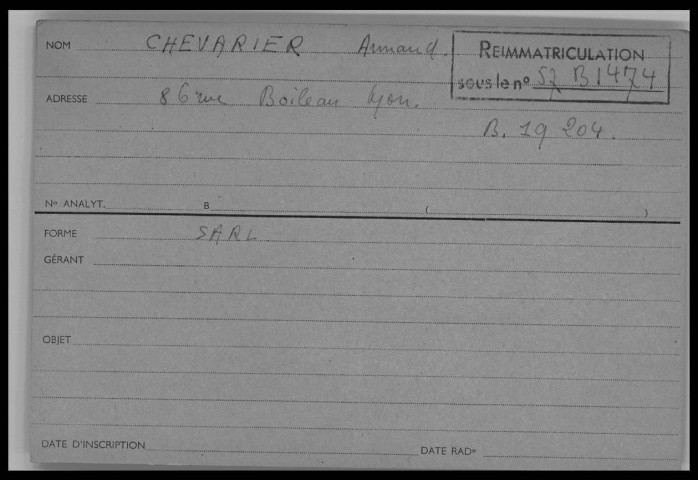 NOM CHEVARIER Armand.
REIMMATRICULATION
sous le n° 57 B 1474
ADRESSE 86 rue Boileau Lyon.
B. 19 204.
N° ANALYT. B ( )
FORME SARL
GÉRANT
OBJET
DATE D'INSCRIPTION DATE RADon